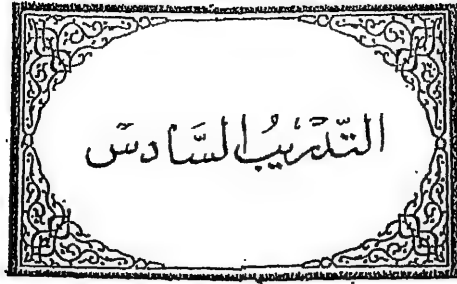 التّدريبُ السَّادسُ